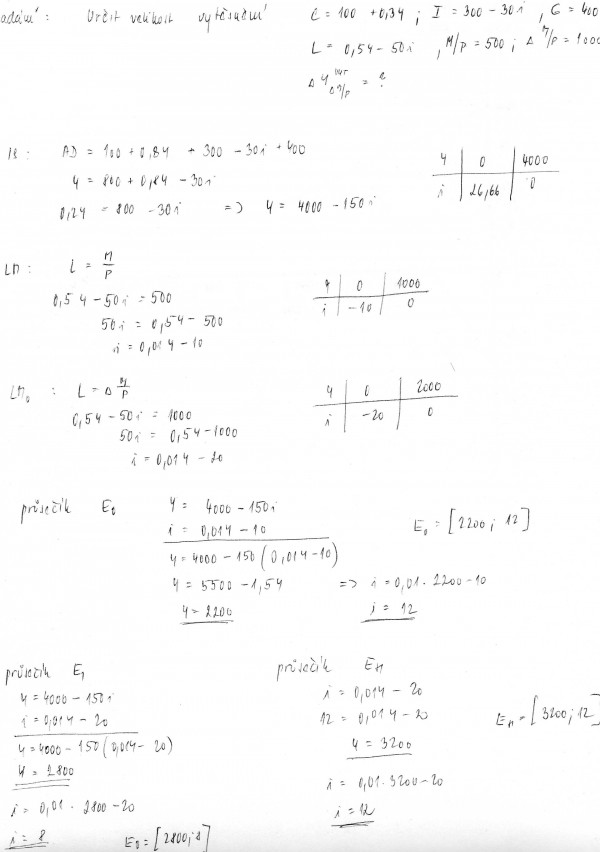 adání: Určit velikost vytěsnění C = 100 + 0,3Y ; I = 300 - 30i , G = 400
L = 0,5Y - 50i , M/P = 500 ; Δ M/P = 1000
ΔY = ?
IS: AD = 100 + 0,8Y + 300 - 30i + 400
Y = 800 + 0,8Y - 30i
0,2Y = 800 - 30i => Y = 4000 - 150i
Y 0 4000
i 26,66 0
LM: L = M/P
0,5Y - 50i = 500
50i = 0,5Y - 500
i = 0,01Y - 10
Y 0 1000
i -10 0
LM₀ : L = Δ M/P
0,5Y - 50i = 1000
50i = 0,5Y - 1000
i = 0,01Y - 20
Y 0 2000
i -20 0
průsečík E₀
Y = 4000 - 150i
i = 0,01Y - 10
Y = 4000 - 150(0,01Y - 10)
Y = 5500 - 1,5Y => i = 0,01 · 2200 - 10
Y = 2200 i = 12
E₀ = [2200; 12]
průsečík E₁
Y = 4000 - 150i
i = 0,01Y - 20
Y = 4000 - 150(0,01Y - 20)
Y = 2800
i = 0,01 · 2800 - 20
i = 8 E₀ = [2800; 8]
průsečík E₁₁
i = 0,01Y - 20
12 = 0,01Y - 20
Y = 3200
i = 0,01 · 3200 - 20
i = 12
E₁₁ = [3200; 12]